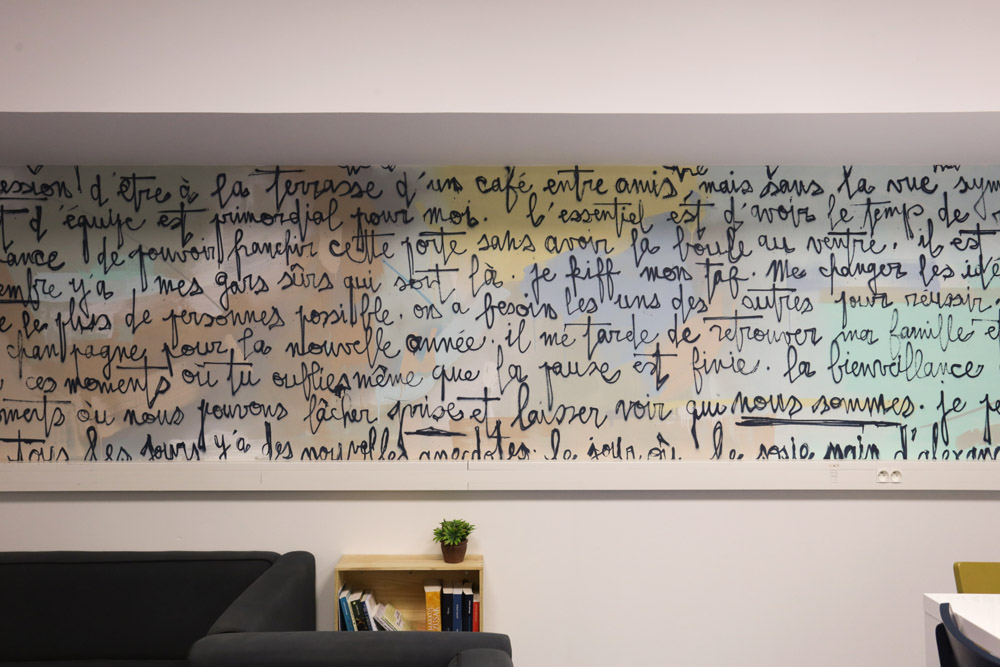 ession! d'être à la terrasse d'un café entre amis mais sans la vue sym
t d'équipe est primordial pour moi. l'essentiel est d'avoir le temps de
ance! de pouvoir franchir cette porte sans avoir la boule au ventre. il est
embre y'a mes gars sûrs qui sont là. je kiff mon taf. Me changer les idé
e le plus de personnes possible. on a besoin les uns des autres pour réussir.
champagne pour la nouvelle année. il me tarde de retrouver ma famille e
ces moments où tu oublies même que la pause est finie. la bienveillance
oments où nous pouvons lâcher prise et laisser voir qui nous sommes. je p
tous les jours y'a des nouvelles anecdotes. le jour où le sosie main d'alexan